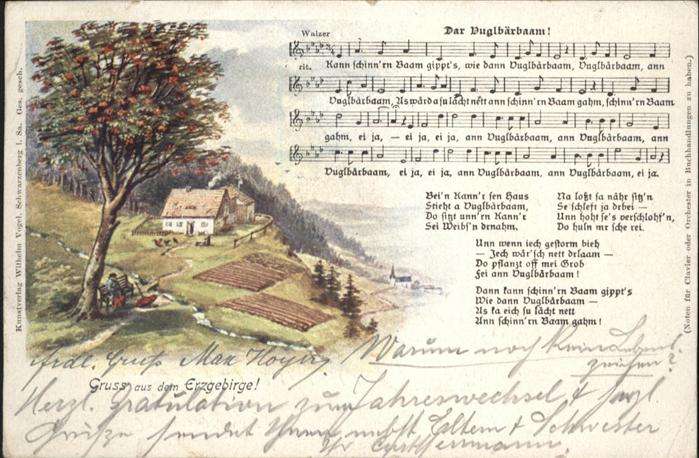 Dar Vuglbärbaam!
Walzer
rit.
Kann schinn'rn Baam gippt's, wie dann Vuglbärbaam, Vuglbärbaam, ann
Vuglbärbaam, As wärd a su lächt nett ann schinn'rn Baam gahm, schinn'rn Baam
gahm, ei ja, — ei ja, ei ja, ann Vuglbärbaam, ann Vuglbärbaam, ann
Vuglbärbaam, ei ja, ei ja, ann Vuglbärbaam, ann Vuglbärbaam, ei ja.
Bei'n Kann'r sen Haus
Stieht a Vuglbärbaam,
Do sitzt unn'rn Kann'r
Sei Weibs'n denahm.
Na loßt sa nähr sitz'n
Se schleft ja drbei —
Unn hoht se's verschlohf'n,
Do huln mr sche rei.
Unn wenn iech gestorm bieh
— Jech wär'sch nett drlaam —
Do pflanzt off mei Grob
Fei ann Vuglbärbaam!
Dann kann schinn'rn Baam gippt's
Wie dann Vuglbärbaam —
As ka eich su lächt nett
Ann schinn'rn Baam gahm!
Kunstverlag Wilhelm Vogel, Schwarzenberg i. Sa. Ges. gesch.
(Noten für Clavier oder Orchester in Buchhandlungen zu haben.)
Gruss aus dem Erzgebirge!
Gruß Max
Warum noch kein
zeichen?
Herzl. Gratulation zum Jahreswechsel &
Grüße sendet Ihnen nebst Eltern & Schwester
Ihr